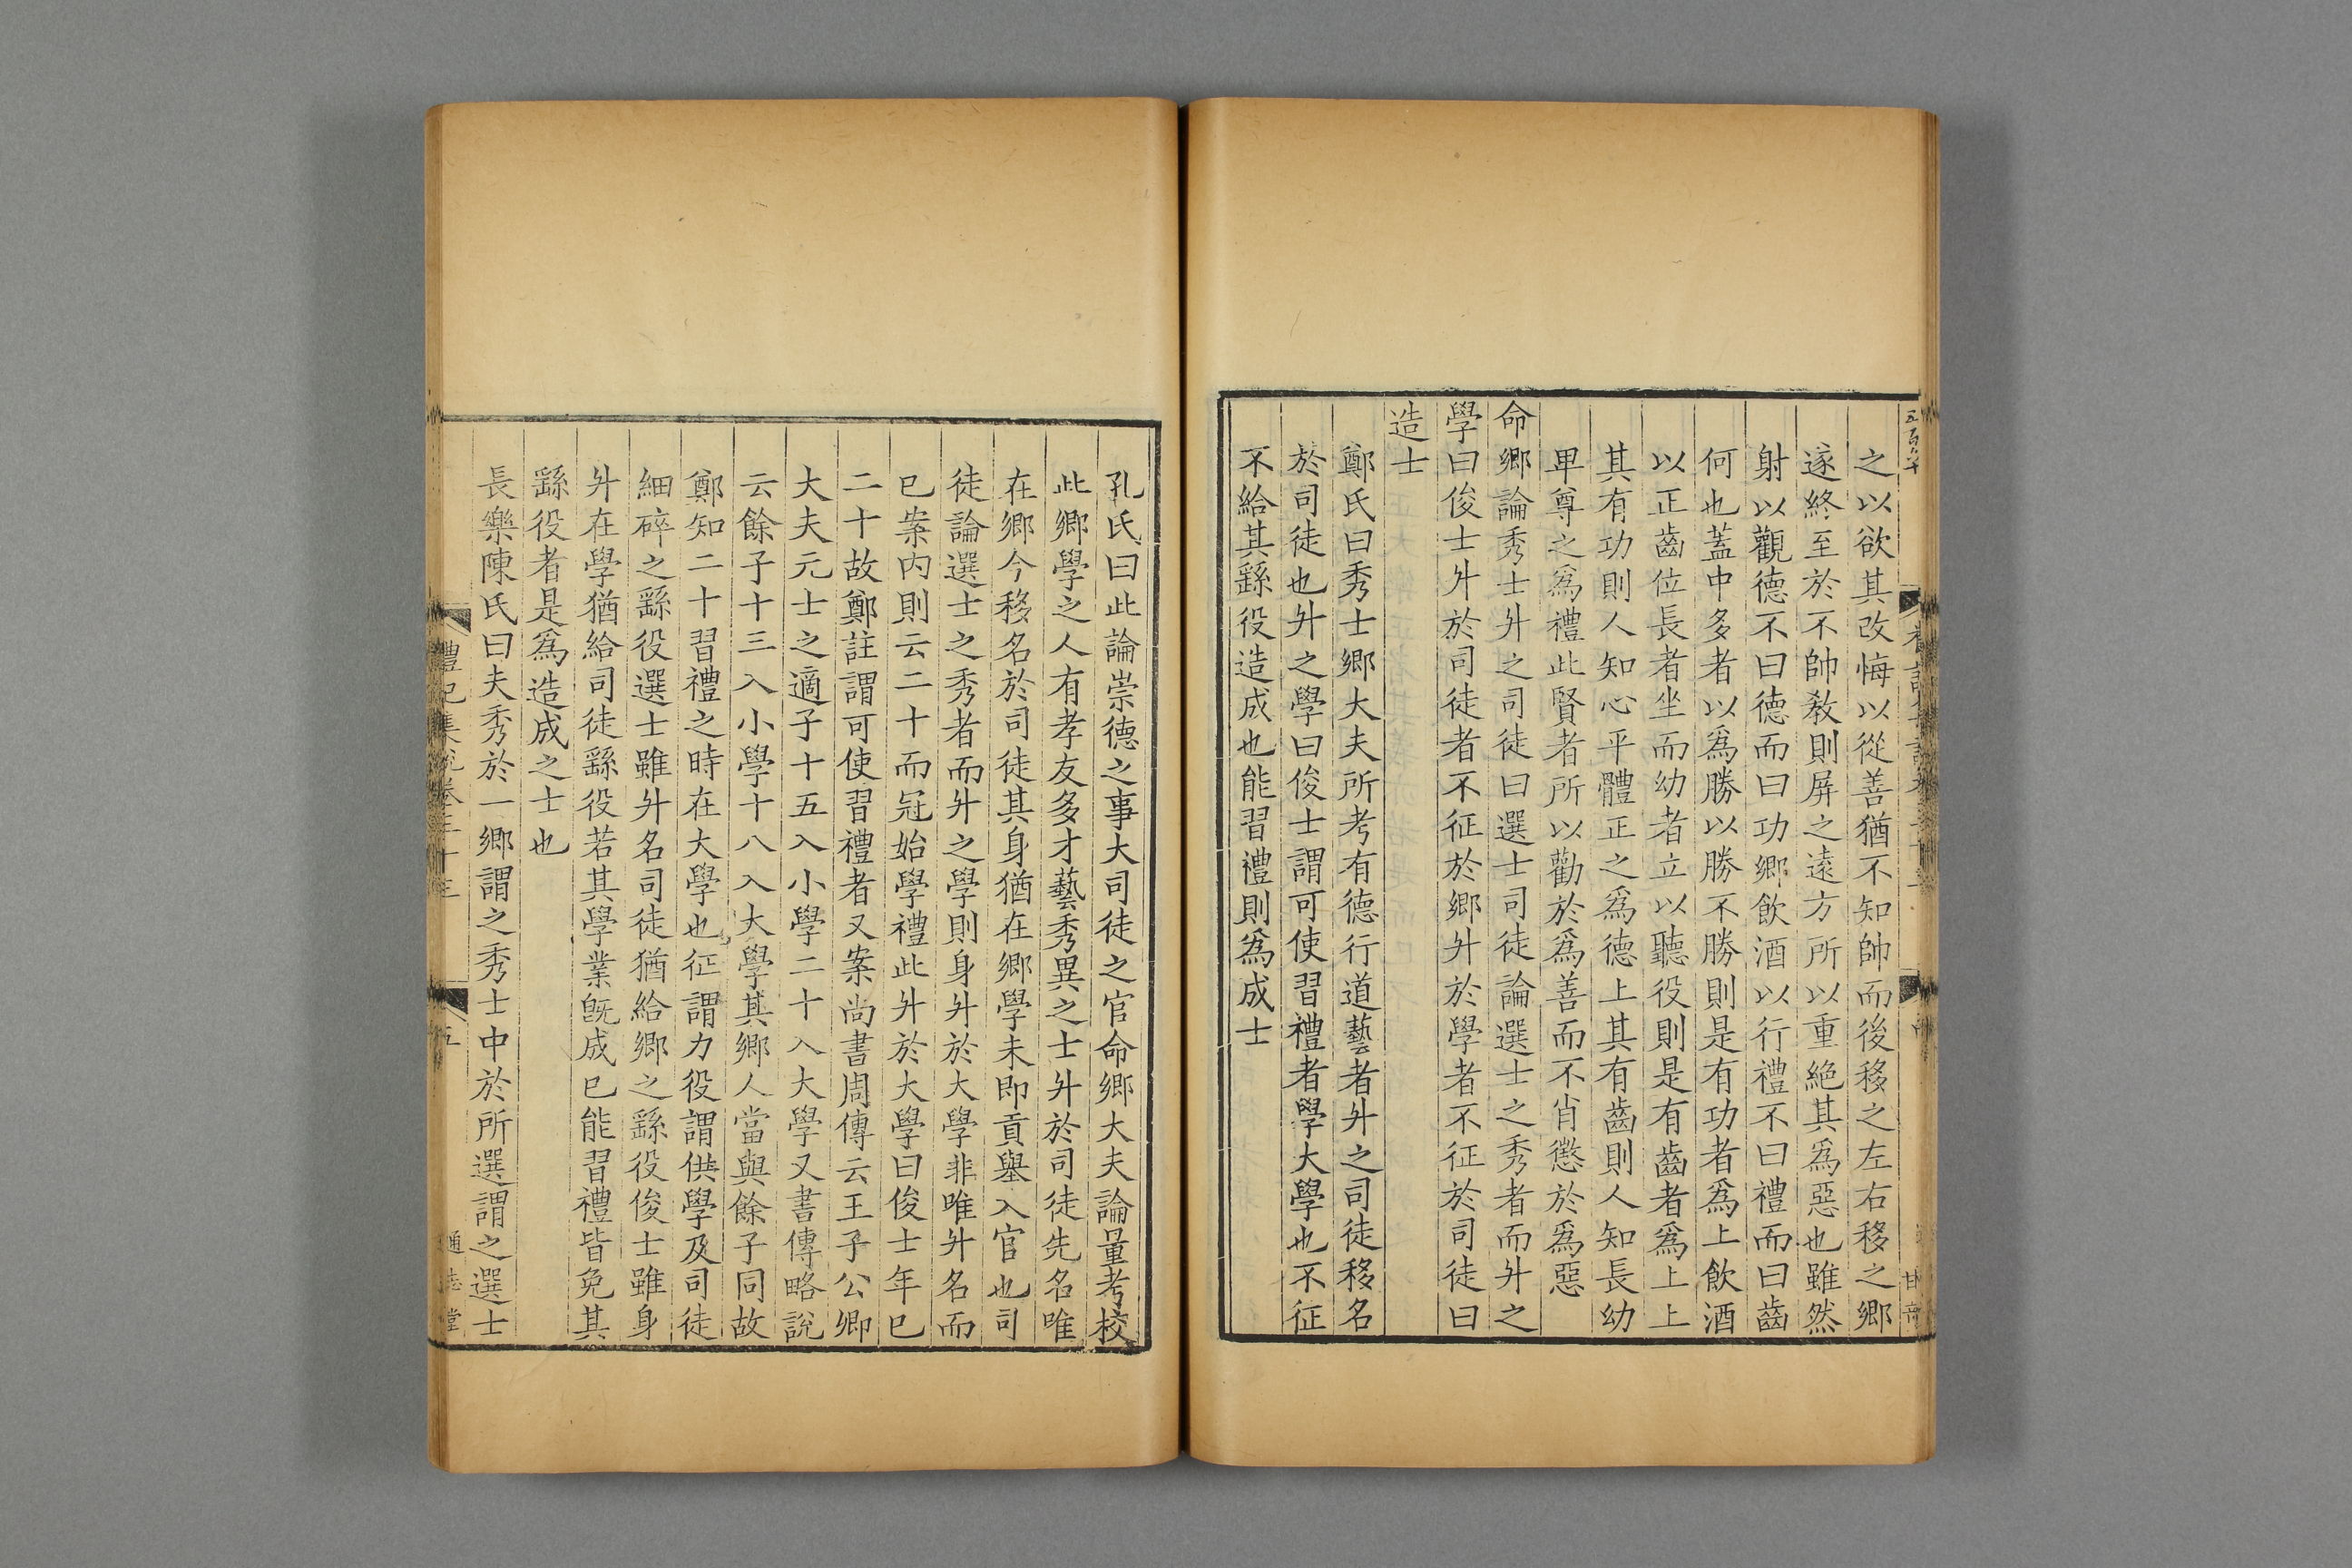 之以欲其改悔以從善猶不知帥而後移之左右移之鄉
遂終至於不帥敎則屏之遠方所以重絶其爲惡也雖然
射以觀德不曰德而曰功鄉飲酒以行禮不曰禮而曰齒
何也蓋中多者以爲勝以勝不勝則是有功者爲上飲酒
以正齒位長者坐而幼者立以聽役則是有齒者爲上上
其有功則人知心平體正之爲德上其有齒則人知長幼
卑尊之爲禮此賢者所以勸於爲善而不肖懲於爲惡
命鄉論秀士升之司徒曰選士司徒論選士之秀者而升之
學曰俊士升於司徒者不征於鄉升於學者不征於司徒曰
造士
鄭氏曰秀士鄉大夫所考有德行道藝者升之司徒移名
於司徒也升之學曰俊士謂可使習禮者學大學也不征
不給其繇役造成也能習禮則爲成士
孔氏曰此論崇德之事大司徒之官命鄉大夫論量考校
此鄉學之人有孝友多才藝秀異之士升於司徒先名唯
在鄉今移名於司徒其身猶在鄉學未即貢舉入官也司
徒論選士之秀者而升之學則身升於大學非唯升名而
已案內則云二十而冠始學禮此升於大學曰俊士年已
二十故鄭註謂可使習禮者又案尚書周傳云王子公卿
大夫元士之適子十五入小學二十入大學又書傳略說
云餘子十三入小學十八入大學其鄉人當與餘子同故
鄭知二十習禮之時在大學也征謂力役謂供學及司徒
細碎之繇役選士雖升名司徒猶給鄉之繇役俊士雖身
升在學猶給司徒繇役若其學業旣成已能習禮皆免其
繇役者是爲造成之士也
長樂陳氏曰夫秀於一鄉謂之秀士中於所選謂之選士
禮記集說卷三十三
五
通志堂